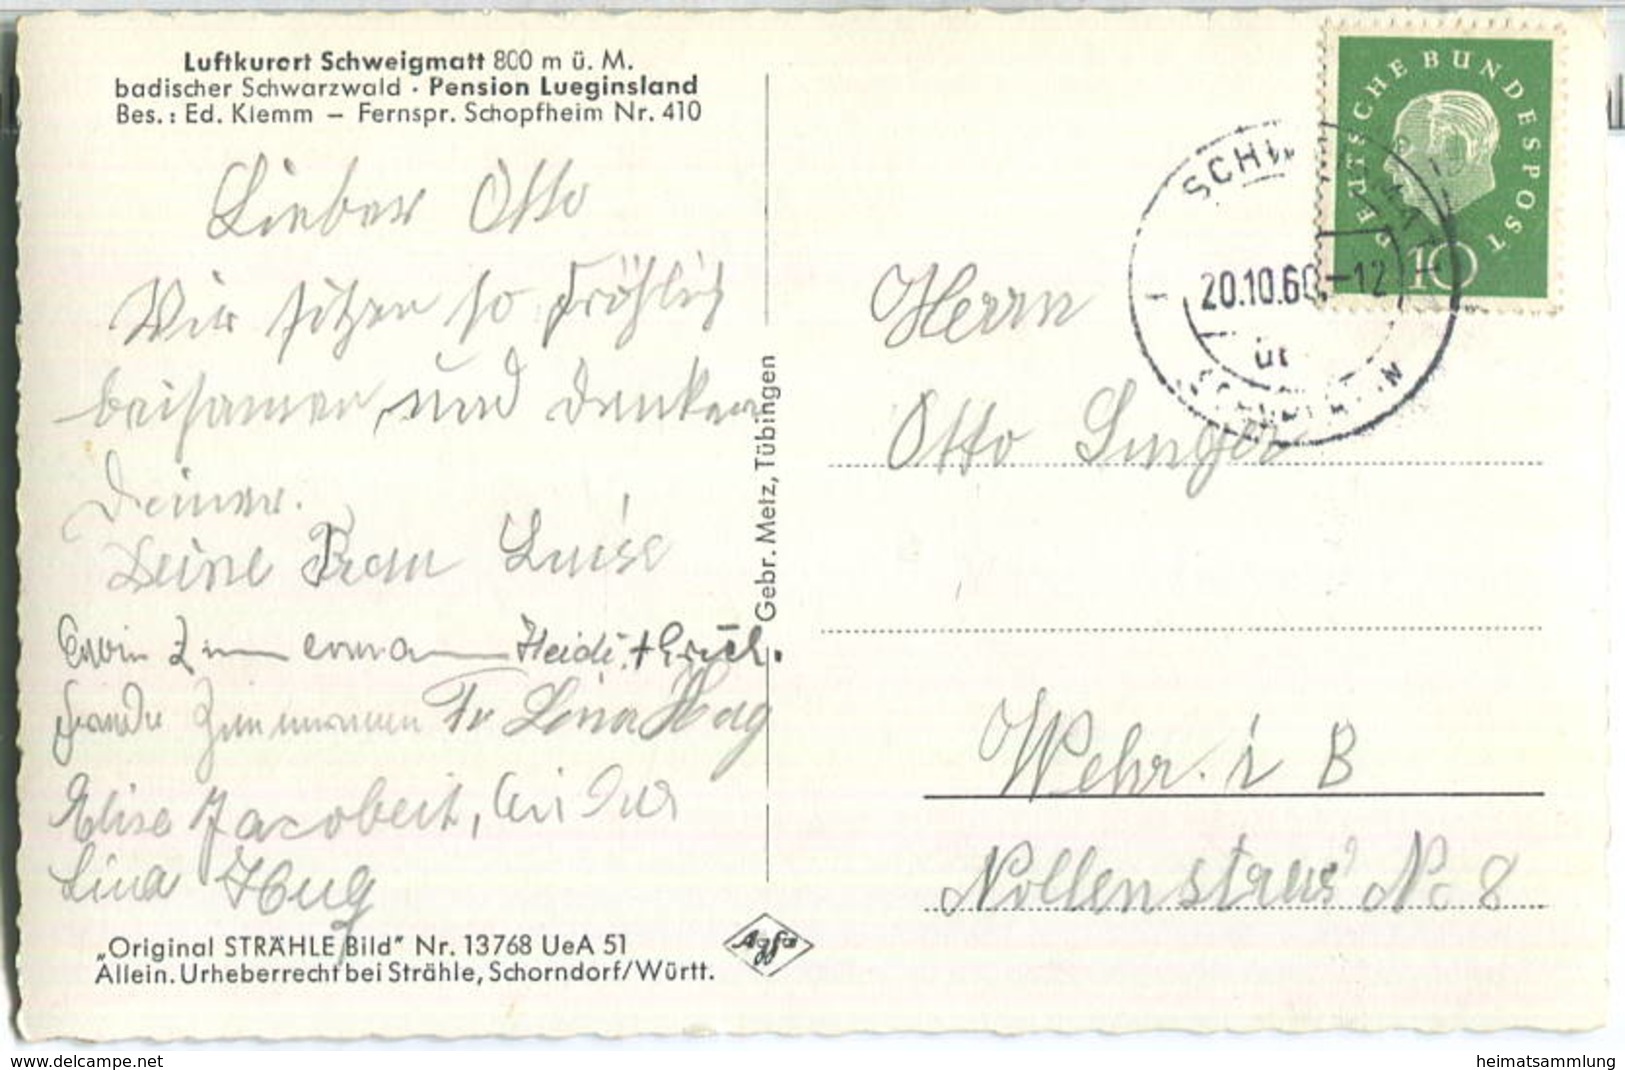 Luftkurort Schweigmatt 800 m ü. M.
badischer Schwarzwald · Pension Lueginsland
Bes.: Ed. Klemm – Fernspr. Schopfheim Nr. 410
Lieber Otto
Wir sitzen so fröhlich
beisamen und denken
Deiner.
Deine Frau Luise
Erwin Erna Heidi + Erich.
Fr Lina Hag
Elise Jacobeit,
Lina Hug
„Original STRÄHLE Bild" Nr. 13768 UeA 51
Allein. Urheberrecht bei Strähle, Schorndorf/Württ.
Gebr. Metz, Tübingen
Agfa
DEUTSCHE BUNDESPOST
10
20.10.60.-12
Herrn
Otto Singer
Wehr. i B
Nollenstras No 8
delcampe.net
heimatsammlung